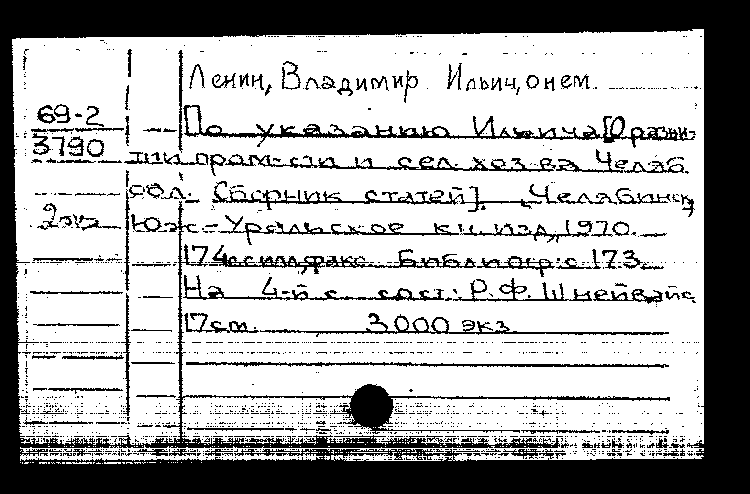 Ленин, Владимир Ильич, о нем.
69-2
3790
2экз
По указанию Ильича [О разви-
тии пром-сти и сел. хоз-ва Челяб.
обл. Сборник статей]. Челябинск,
Юж-Уральское кн. изд, 1970.
174 с. илл, факс. Библиогр: с 173.
На 4-й с. сост: Р.Ф. Шнейвайс
17см. 3000 экз.